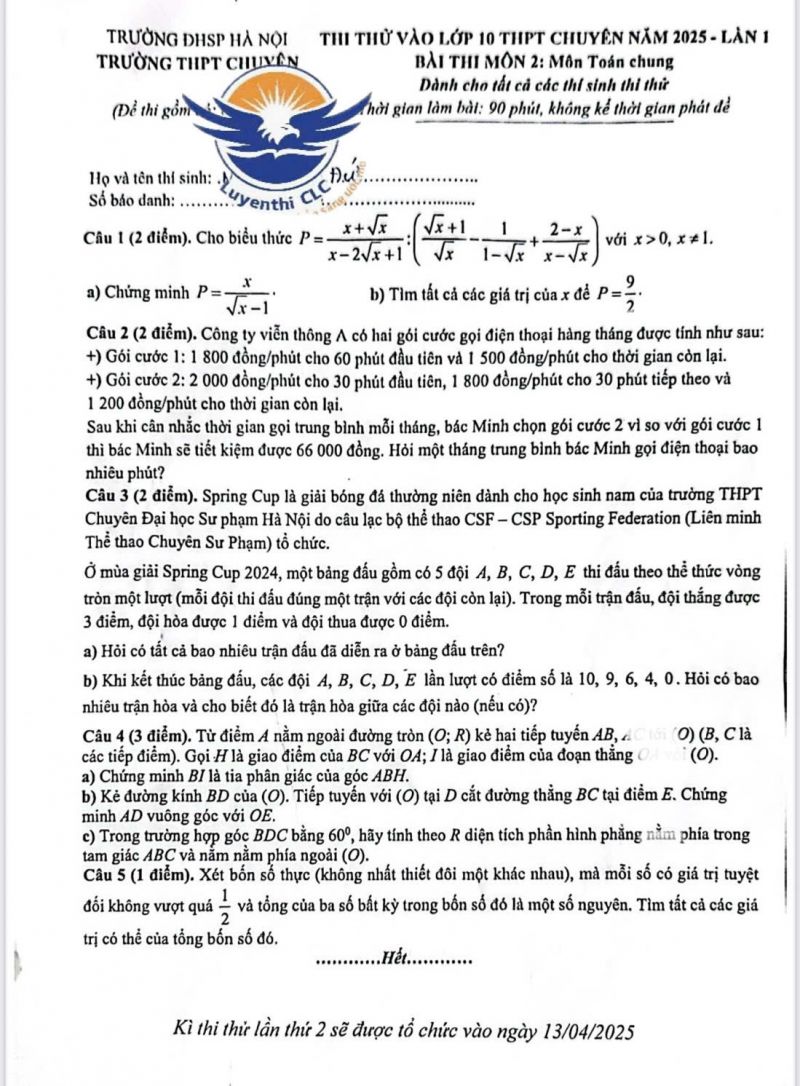 TRƯỜNG ĐHSP HÀ NỘI THI THỬ VÀO LỚP 10 THPT CHUYÊN NĂM 2025 - LẦN 1
TRƯỜNG THPT CHUYÊN BÀI THI MÔN 2: Môn Toán chung
Dành cho tất cả các thí sinh thi thử
(Đề thi gồm Thời gian làm bài: 90 phút, không kể thời gian phát đề
Họ và tên thí sinh: Đứ
Số báo danh: ........
Luyenthi CLC
Câu 1 (2 điểm). Cho biểu thức P = (x+√x)/(x−2√x+1) : ((√x+1)/√x − 1/(1−√x) + (2−x)/(x−√x)) với x > 0, x ≠ 1.
a) Chứng minh P = x/(√x−1). b) Tìm tất cả các giá trị của x để P = 9/2.
Câu 2 (2 điểm). Công ty viễn thông A có hai gói cước gọi điện thoại hàng tháng được tính như sau:
+) Gói cước 1: 1 800 đồng/phút cho 60 phút đầu tiên và 1 500 đồng/phút cho thời gian còn lại.
+) Gói cước 2: 2 000 đồng/phút cho 30 phút đầu tiên, 1 800 đồng/phút cho 30 phút tiếp theo và
1 200 đồng/phút cho thời gian còn lại.
Sau khi cân nhắc thời gian gọi trung bình mỗi tháng, bác Minh chọn gói cước 2 vì so với gói cước 1
thì bác Minh sẽ tiết kiệm được 66 000 đồng. Hỏi một tháng trung bình bác Minh gọi điện thoại bao
nhiêu phút?
Câu 3 (2 điểm). Spring Cup là giải bóng đá thường niên dành cho học sinh nam của trường THPT
Chuyên Đại học Sư phạm Hà Nội do câu lạc bộ thể thao CSF – CSP Sporting Federation (Liên minh
Thể thao Chuyên Sư Phạm) tổ chức.
Ở mùa giải Spring Cup 2024, một bảng đấu gồm có 5 đội A, B, C, D, E thi đấu theo thể thức vòng
tròn một lượt (mỗi đội thi đấu đúng một trận với các đội còn lại). Trong mỗi trận đấu, đội thắng được
3 điểm, đội hòa được 1 điểm và đội thua được 0 điểm.
a) Hỏi có tất cả bao nhiêu trận đấu đã diễn ra ở bảng đấu trên?
b) Khi kết thúc bảng đấu, các đội A, B, C, D, E lần lượt có điểm số là 10, 9, 6, 4, 0. Hỏi có bao
nhiêu trận hòa và cho biết đó là trận hòa giữa các đội nào (nếu có)?
Câu 4 (3 điểm). Từ điểm A nằm ngoài đường tròn (O; R) kẻ hai tiếp tuyến AB, AC tới (O) (B, C là
các tiếp điểm). Gọi H là giao điểm của BC với OA; I là giao điểm của đoạn thẳng OA với (O).
a) Chứng minh BI là tia phân giác của góc ABH.
b) Kẻ đường kính BD của (O). Tiếp tuyến với (O) tại D cắt đường thẳng BC tại điểm E. Chứng
minh AD vuông góc với OE.
c) Trong trường hợp góc BDC bằng 60⁰, hãy tính theo R diện tích phần hình phẳng nằm phía trong
tam giác ABC và nằm nằm phía ngoài (O).
Câu 5 (1 điểm). Xét bốn số thực (không nhất thiết đôi một khác nhau), mà mỗi số có giá trị tuyệt
đối không vượt quá 1/2 và tổng của ba số bất kỳ trong bốn số đó là một số nguyên. Tìm tất cả các giá
trị có thể của tổng bốn số đó.
............Hết............
Kì thi thử lần thứ 2 sẽ được tổ chức vào ngày 13/04/2025